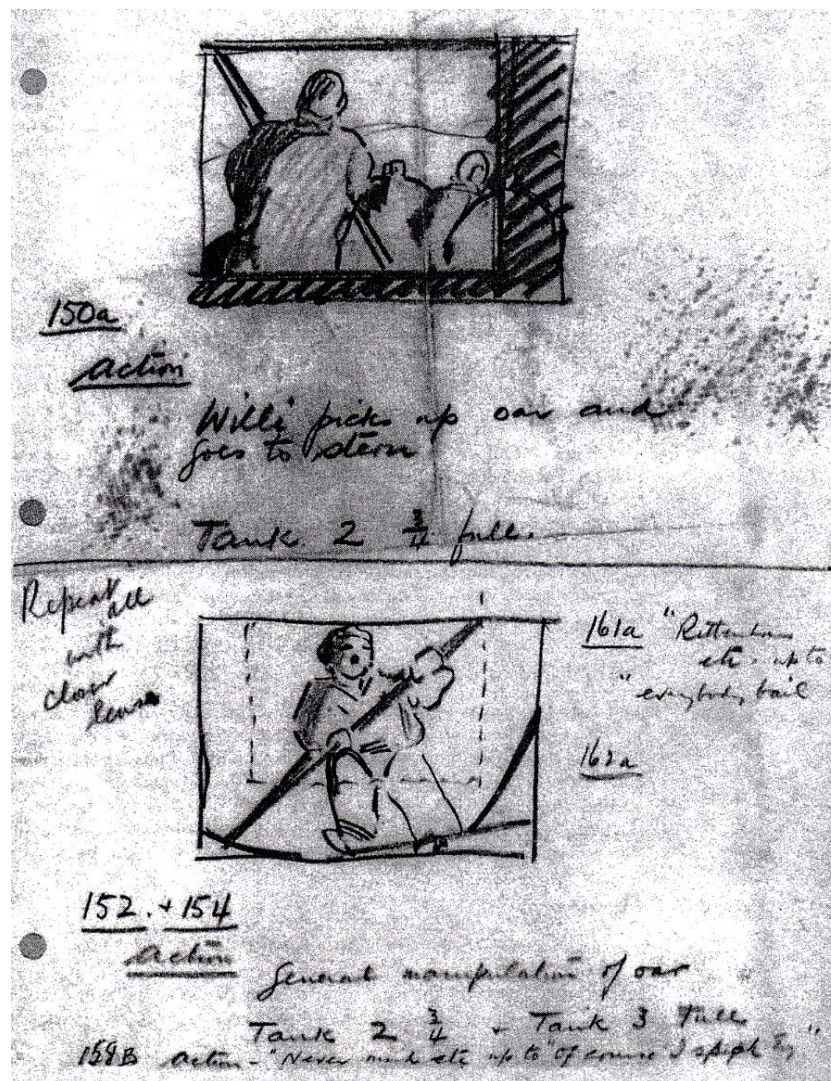 150a
Action
Willi picks up oar and
goes to stern
Tank 2 3/4 full.
Repeat all
with
closer
lense
161a "Rittenhaus
etc. up to
"everybody bail
162a
152. + 154
Action
General manipulation of oar
Tank 2 3/4 + Tank 3 Full
158B Action - "Never mind etc up to "Of course I speak Eng"